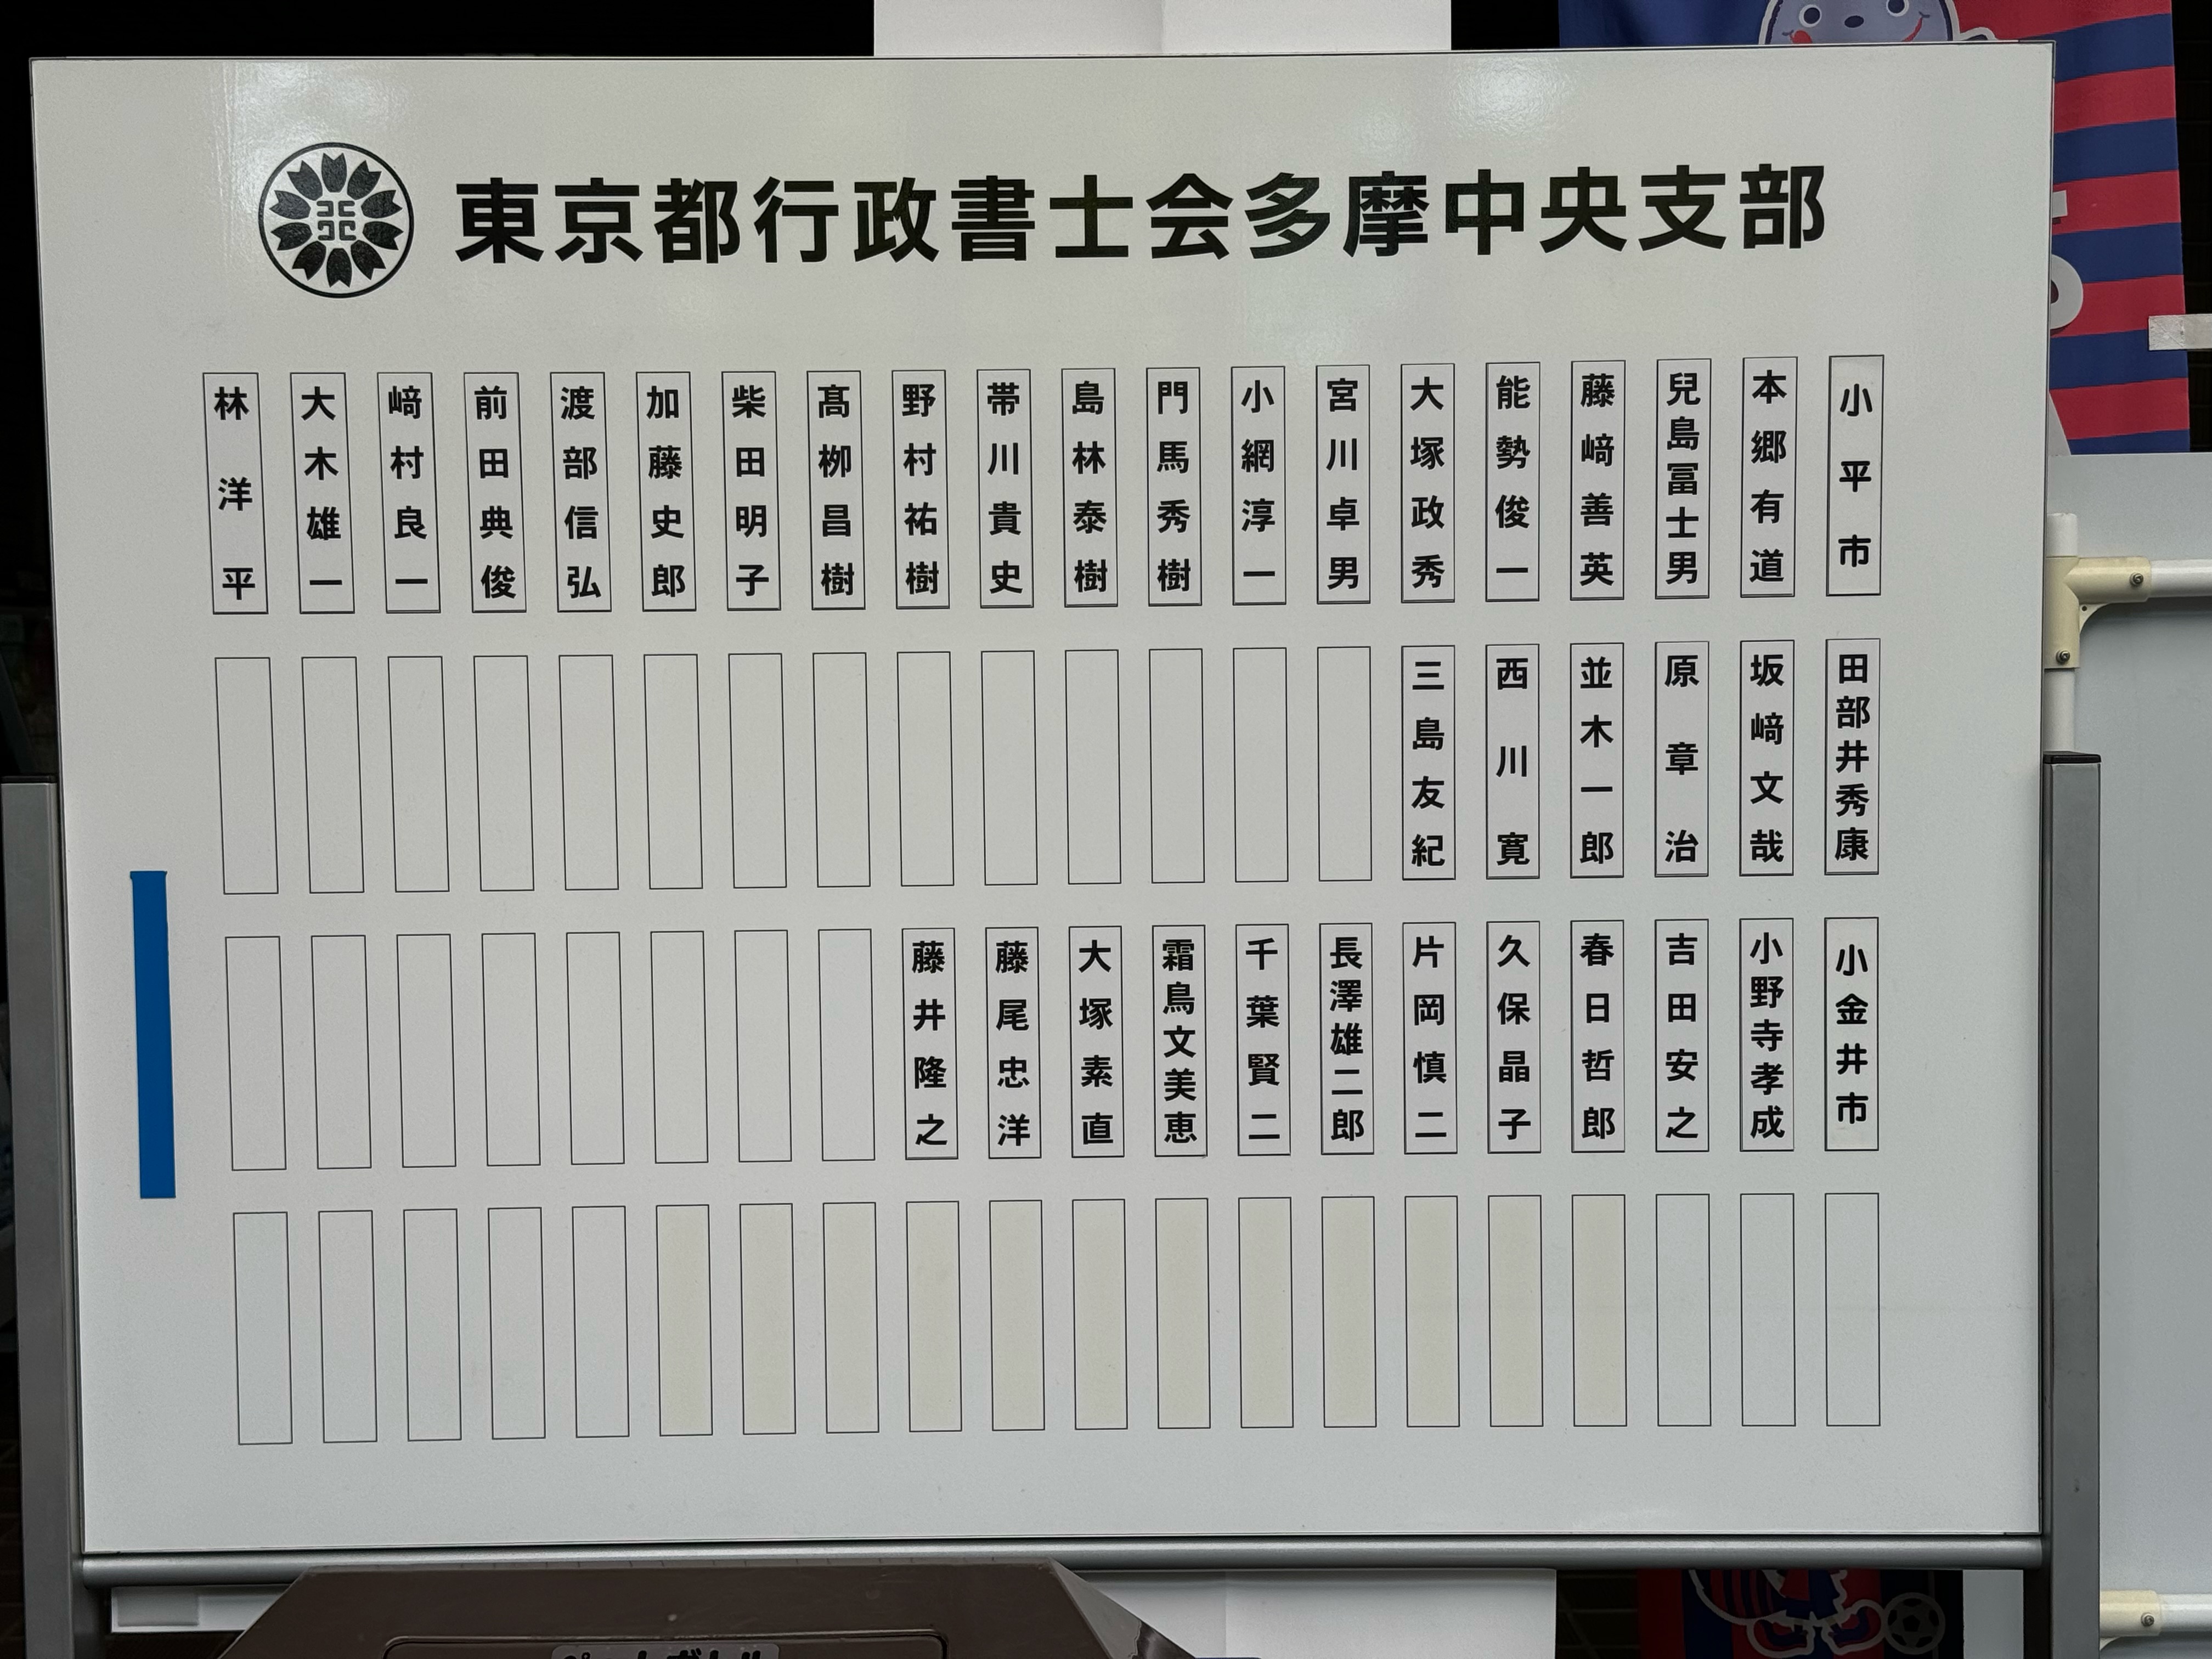 東京都行政書士会多摩中央支部
小平市
本郷有道
兒島冨士男
藤﨑善英
能勢俊一
大塚政秀
宮川卓男
小網淳一
門馬秀樹
島林泰樹
帯川貴史
野村祐樹
髙栁昌樹
柴田明子
加藤史郎
渡部信弘
前田典俊
﨑村良一
大木雄一
林洋平
田部井秀康
坂﨑文哉
原章治
並木一郎
西川寛
三島友紀
小金井市
小野寺孝成
吉田安之
春日哲郎
久保晶子
片岡慎二
長澤雄二郎
千葉賢二
霜鳥文美恵
大塚素直
藤尾忠洋
藤井隆之